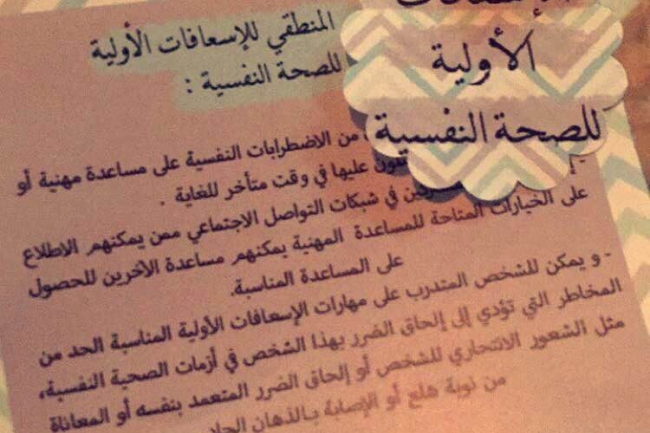 الأولية
للصحة النفسية
المنطقي للإسعافات الأولية
للصحة النفسية :
من الاضطرابات النفسية على مساعدة مهنية أو
عليها في وقت متأخر للغاية .
في شبكات التواصل الاجتماعي ممن يمكنهم الاطلاع
على الخيارات المتاحة للمساعدة المهنية يمكنهم مساعدة الآخرين للحصول
على المساعدة المناسبة.
- و يمكن للشخص المتدرب على مهارات الإسعافات الأولية المناسبة الحد من
المخاطر التي تؤدي إلى إلحاق الضرر بهذا الشخص في أزمات الصحية النفسية،
مثل الشعور الانتحاري للشخص أو إلحاق الضرر المتعمد بنفسه أو المعاناة
من نوبة هلع أو الإصابة بالذهان الحاد